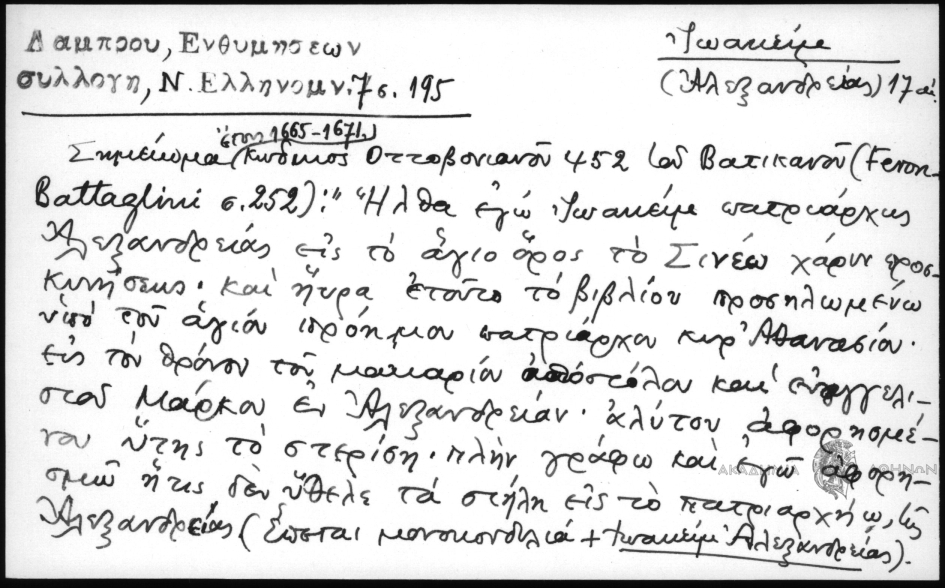 Λαμπρου, Ενθυμησεων
συλλογη, Ν. Ελληνομν. 7 σ. 195
Ἰωακείμ
(Ἀλεξανδρείας) 17 αἰ.
ἔτους 1665-1671.
Σημείωμα (Κώδικος Ὀττοβονιανοῦ 452 τοῦ Βατικανοῦ (Feron-
Battaglini σ. 252): "Ἦλθα ἐγώ Ἰωακείμ πατριάρχις
Ἀλεξανδρείας εἰς τὸ ἅγιο ὄρος τὸ Σινέω χάριν προσ-
κυνήσεως· καὶ ἥυρα ἐτοῦτο τὸ βιβλίον προσηλωμένω
ὑπὸ τοῦ ἁγίου πρόημου πατριάρχου κυρ Ἀθανασίου·
εἰς τὸν θρόνον τοῦ μακαρίου ἀποστόλου καὶ εὐαγγελι-
στοῦ Μάρκου ἐν Ἀλεξανδρείαν· ἀλύτου ἀφορησμέ-
νου ὕτης τὸ στερίση· πλὴν γράφω καὶ ἐγῶ ἀφορη-
σμῶ ἥτις δὲν ὔθελε τὰ στήλη εἰς τὸ πατριαρχήω, τῆς
Ἀλεξανδρείας (ἕπεται μονοκονδυλιά + Ἰωακείμ Ἀλεξανδρείας).
ΑΚΑΔΗΜΙΑ ΑΘΗΝΩΝ